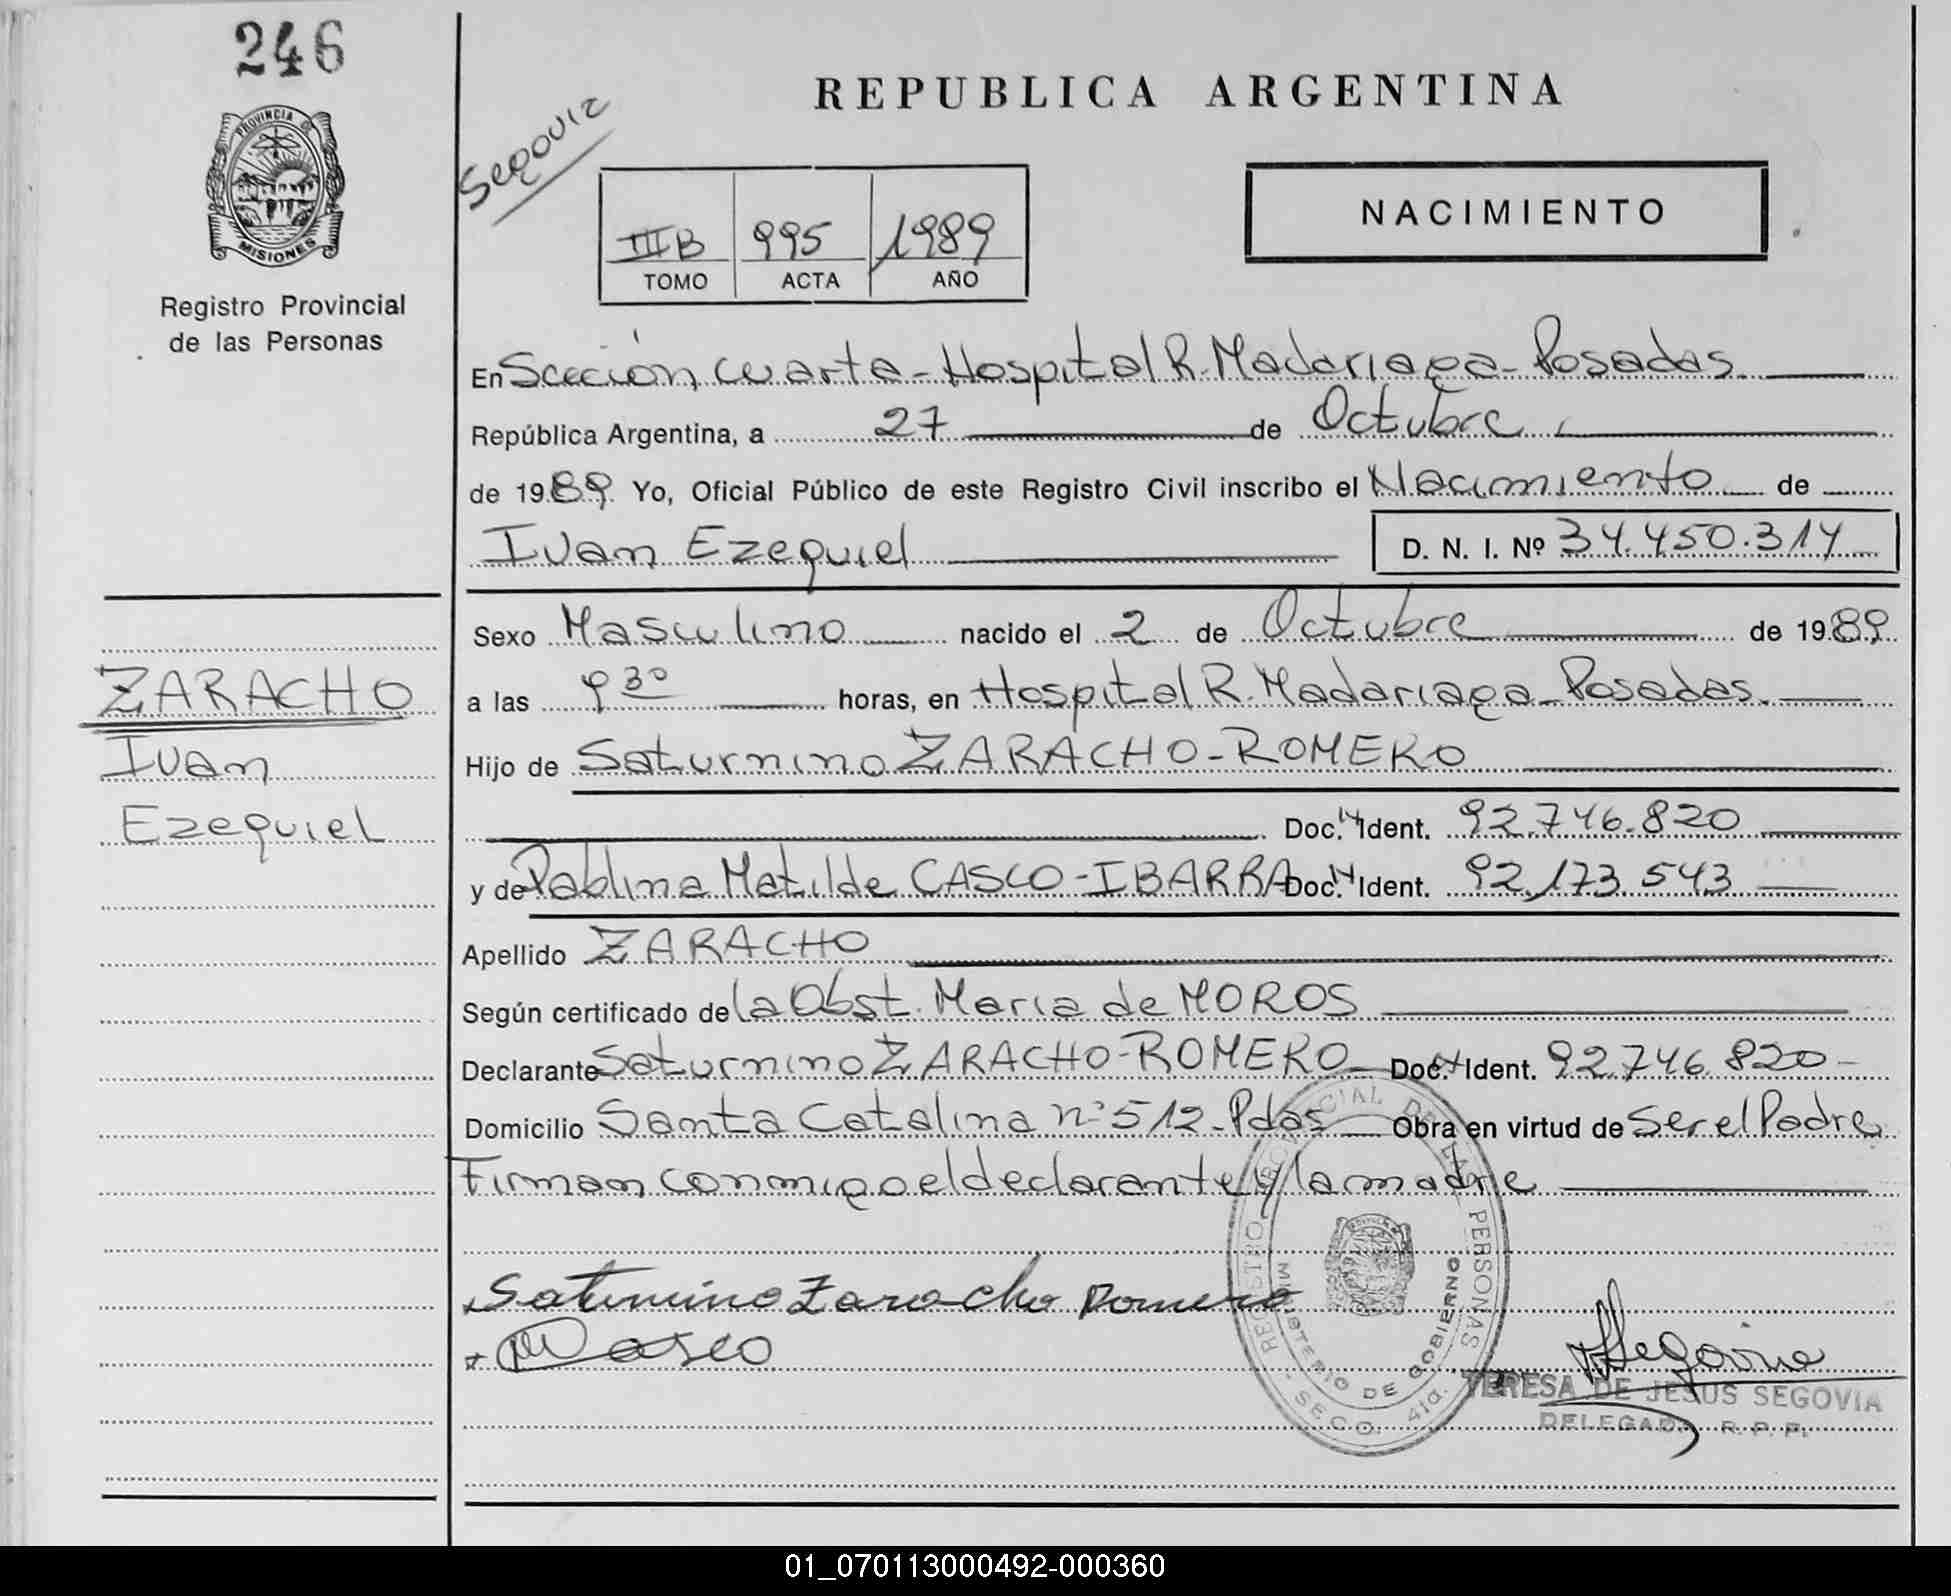 246
PROVINCIA DE
MISIONES
Registro Provincial
de las Personas
ZARACHO
Ivan
Ezequiel
Segovia
REPUBLICA ARGENTINA
III B 995 1989
TOMO ACTA AÑO
NACIMIENTO
En Sección Cuarta - Hospital R. Madariaga - Posadas
República Argentina, a 27 de Octubre
de 1989 Yo, Oficial Público de este Registro Civil inscribo el Nacimiento de
Ivan Ezequiel D. N. I. Nº 34.450.314
Sexo Masculino nacido el 2 de Octubre de 1989
a las 9 30 horas, en Hospital R. Madariaga - Posadas
Hijo de Saturnino ZARACHO - ROMERO
Doc. Ident. 92.746.820
y de Pablina Matilde CASCO - IBARRA Doc. Ident. 92.173.543
Apellido ZARACHO
Según certificado de la Obst. Maria de MOROS
Declarante Saturnino ZARACHO - ROMERO Doc. Ident. 92.746.820 -
Domicilio Santa Catalina nº 512 - Pdas Obra en virtud de Ser el Padre
Firman conmigo el declarante y la madre
Saturnino Zaracho Romero
Casco
Segovia
REGISTRO PROVINCIAL DE LAS PERSONAS
MINISTERIO DE GOBIERNO
- SECC. 4ta. -
TERESA DE JESUS SEGOVIA
DELEGADA R. P. P.
01_070113000492-000360